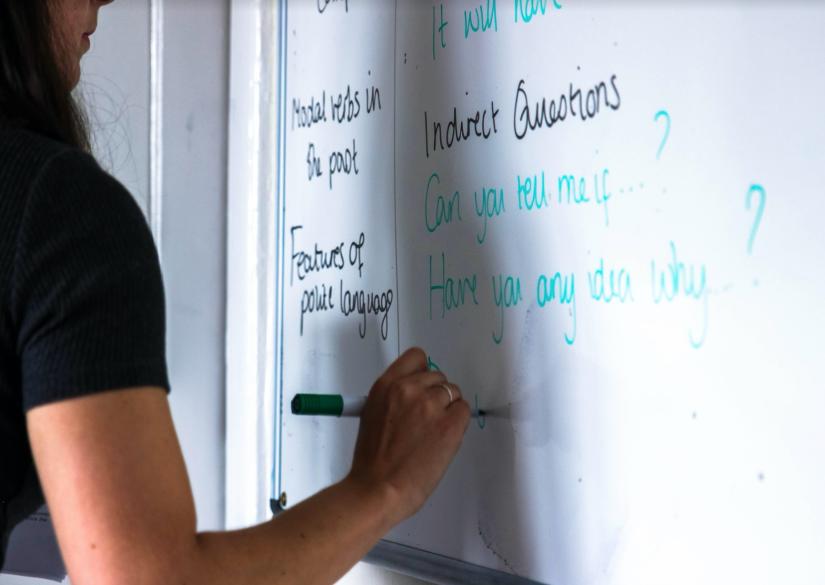 Modal verbs in
the past
Features of
polite language
It will have
Indirect Questions
Can you tell me if ... ?
Have you any idea why ... ?